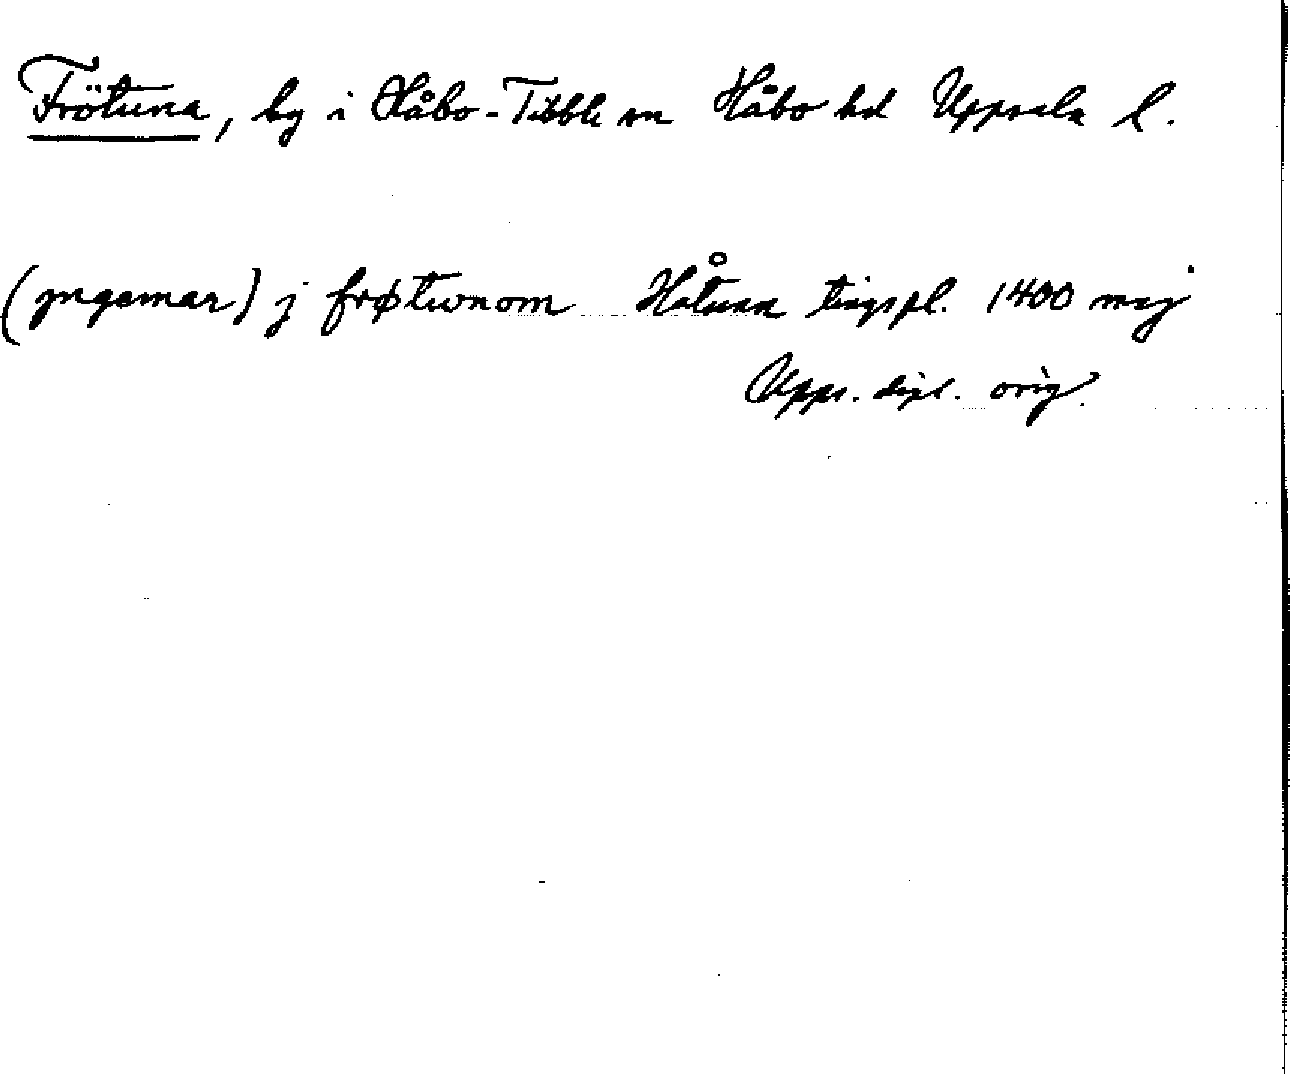 Frötuna, by i Håbo-Tibble sn Håbo hd Uppsala l.
(jngemar) j frøtwnom Håtuna tingspl. 1400 maj
Upps. dipl. orig.